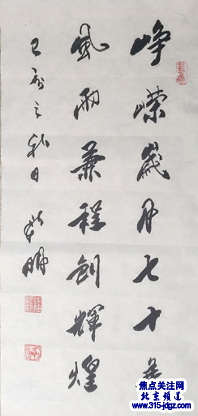 崢嶸歲月七十年
風雨兼程創輝煌
己亥之秋日
焦点关注网
北京频道
www.315-jdgz.com